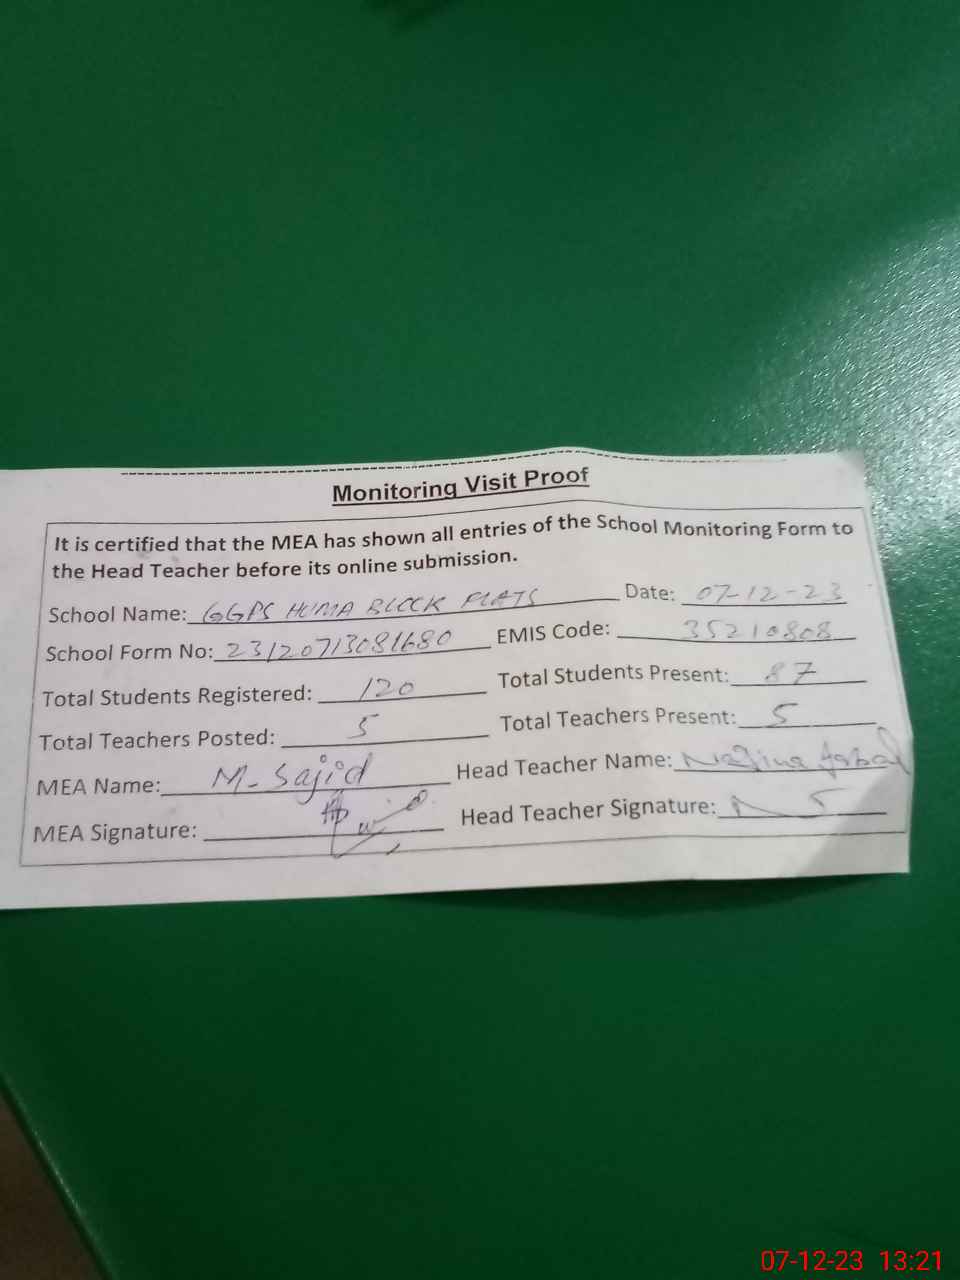 Monitoring Visit Proof
It is certified that the MEA has shown all entries of the School Monitoring Form to
the Head Teacher before its online submission.
School Name: GGPS HUMA BLOCK FLATS Date: 07-12-23
School Form No: 23120713081680 EMIS Code: 35210808
Total Students Registered: 120 Total Students Present: 87
Total Teachers Posted: 5 Total Teachers Present: 5
MEA Name: M-Sajid Head Teacher Name:
MEA Signature: Head Teacher Signature:
07-12-23 13:21